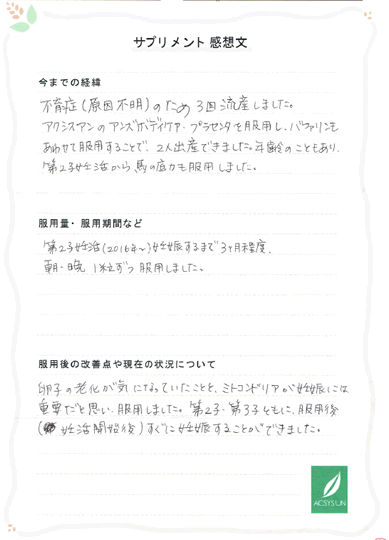 サプリメント 感想文
今までの経緯
不育症(原因不明)のため3回流産しました。
アクシスアンのアンズボディケア・プラセンタを服用し、バファリンも
あわせて服用することで、2人出産できました。年齢のこともあり、
第2子妊活から、馬の底力も服用しました。
服用量・服用期間など
第2子妊活(2016年〜)妊娠するまで3ヶ月程度、
朝・晩 1粒ずつ服用しました。
服用後の改善点や現在の状況について
卵子の老化が気になっていたことと、ミトコンドリアが妊娠には
重要だと思い、服用しました。第2子・第3子ともに、服用後
(妊活開始後)すぐに妊娠することができました。
ACSYSUN